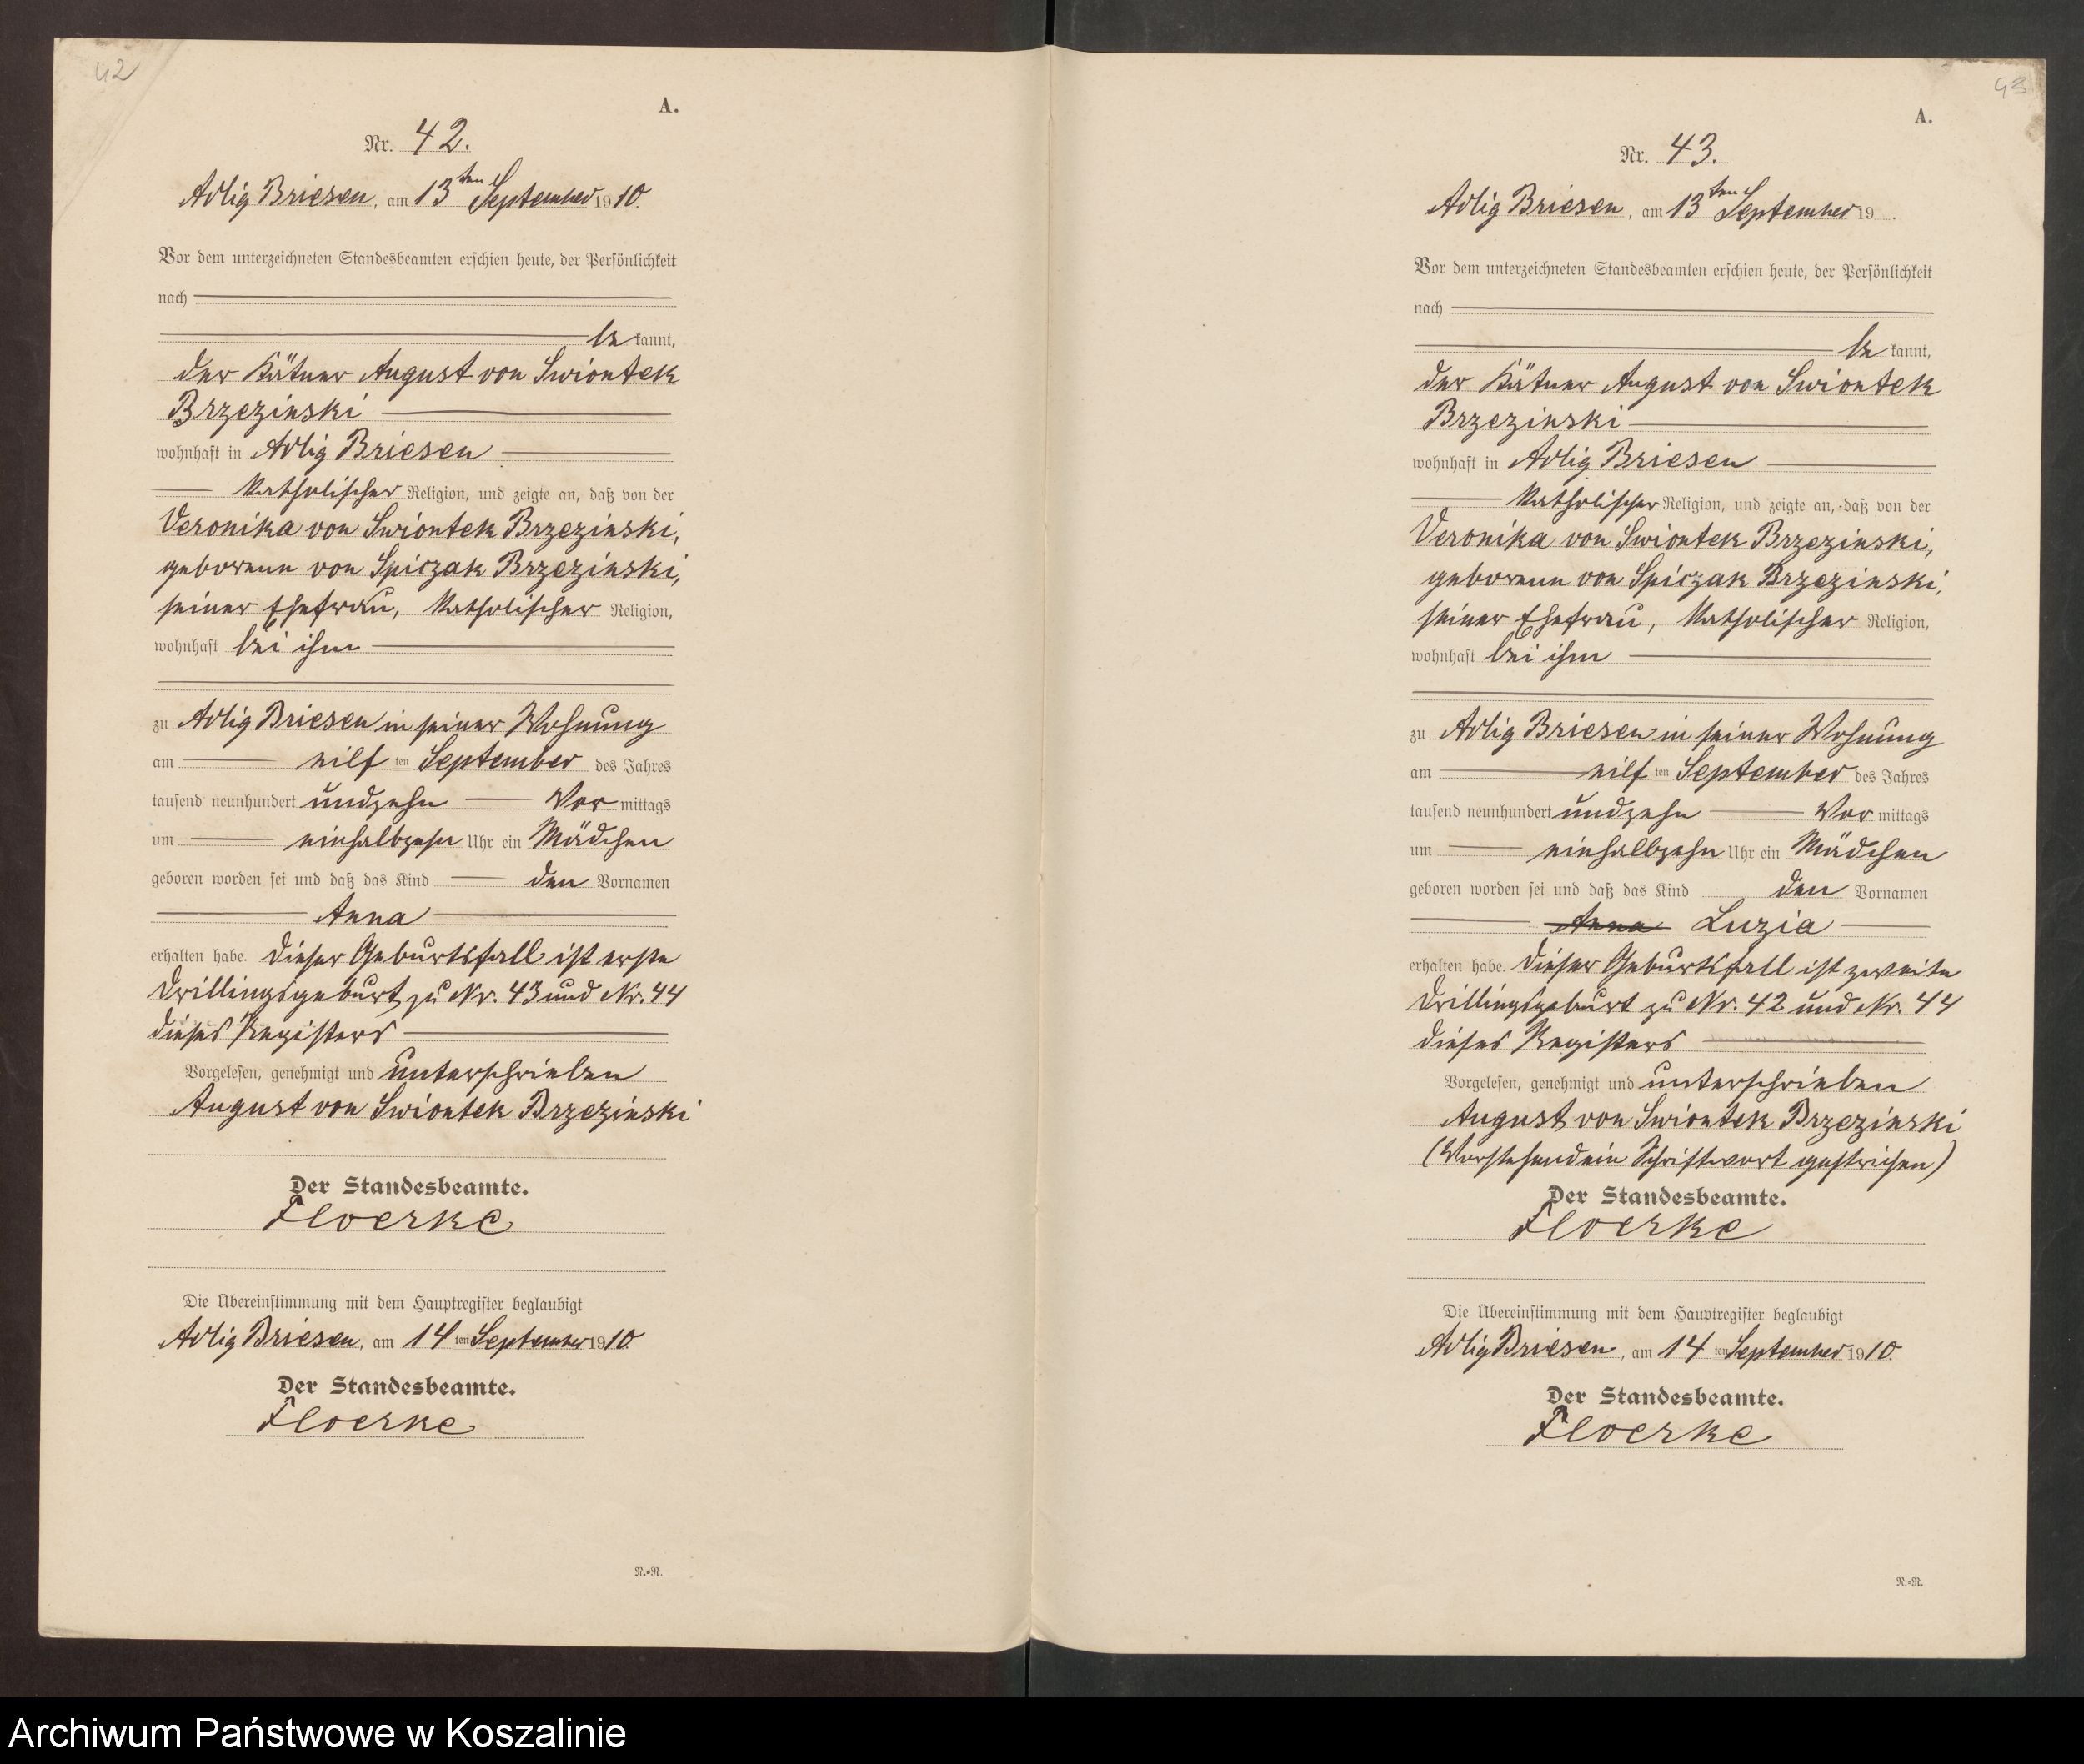 42
A.
Nr. 42.
Adlig Briesen, am 13ten September 1910.
Vor dem unterzeichneten Standesbeamten erschien heute, der Persönlichkeit
nach
be kannt,
der Kätner August von Swiontek
Brzezinski
wohnhaft in Adlig Briesen
katholischer Religion, und zeigte an, daß von der
Veronika von Swiontek Brzezinski,
geborenen von Spiczak Brzezinski,
seiner Ehefrau, katholischer Religion,
wohnhaft bei ihm
zu Adlig Briesen in seiner Wohnung
am eilf ten September des Jahres
tausend neunhundert undzehn Vor mittags
um einhalbzehn Uhr ein Mädchen
geboren worden sei und daß das Kind den Vornamen
Anna
erhalten habe. Dieser Geburtsfall ist erste
Drillingsgeburt zu Nr. 43 und Nr. 44
dieses Registers
Vorgelesen, genehmigt und unterschrieben
August von Swiontek Brzezinski
Der Standesbeamte.
Floerke
Die Übereinstimmung mit dem Hauptregister beglaubigt
Adlig Briesen, am 14 ten September 1910.
Der Standesbeamte.
Floerke
N.-R.
43
A.
Nr. 43.
Adlig Briesen, am 13ten September 19 .
Vor dem unterzeichneten Standesbeamten erschien heute, der Persönlichkeit
nach
be kannt,
der Kätner August von Swiontek
Brzezinski
wohnhaft in Adlig Briesen
katholischer Religion, und zeigte an, daß von der
Veronika von Swiontek Brzezinski,
geborenen von Spiczak Brzezinski,
seiner Ehefrau, katholischer Religion,
wohnhaft bei ihm
zu Adlig Briesen in seiner Wohnung
am eilf ten September des Jahres
tausend neunhundert undzehn Vor mittags
um einhalbzehn Uhr ein Mädchen
geboren worden sei und daß das Kind den Vornamen
Anna Luzia
erhalten habe. Dieser Geburtsfall ist zweite
Drillingsgeburt zu Nr. 42 und Nr. 44
dieses Registers
Vorgelesen, genehmigt und unterschrieben
August von Swiontek Brzezinski
(Vorstehend ein Schriftwort gestrichen)
Der Standesbeamte.
Floerke
Die Übereinstimmung mit dem Hauptregister beglaubigt
Adlig Briesen, am 14 ten September 1910.
Der Standesbeamte.
Floerke
N.-R.
Archiwum Państwowe w Koszalinie